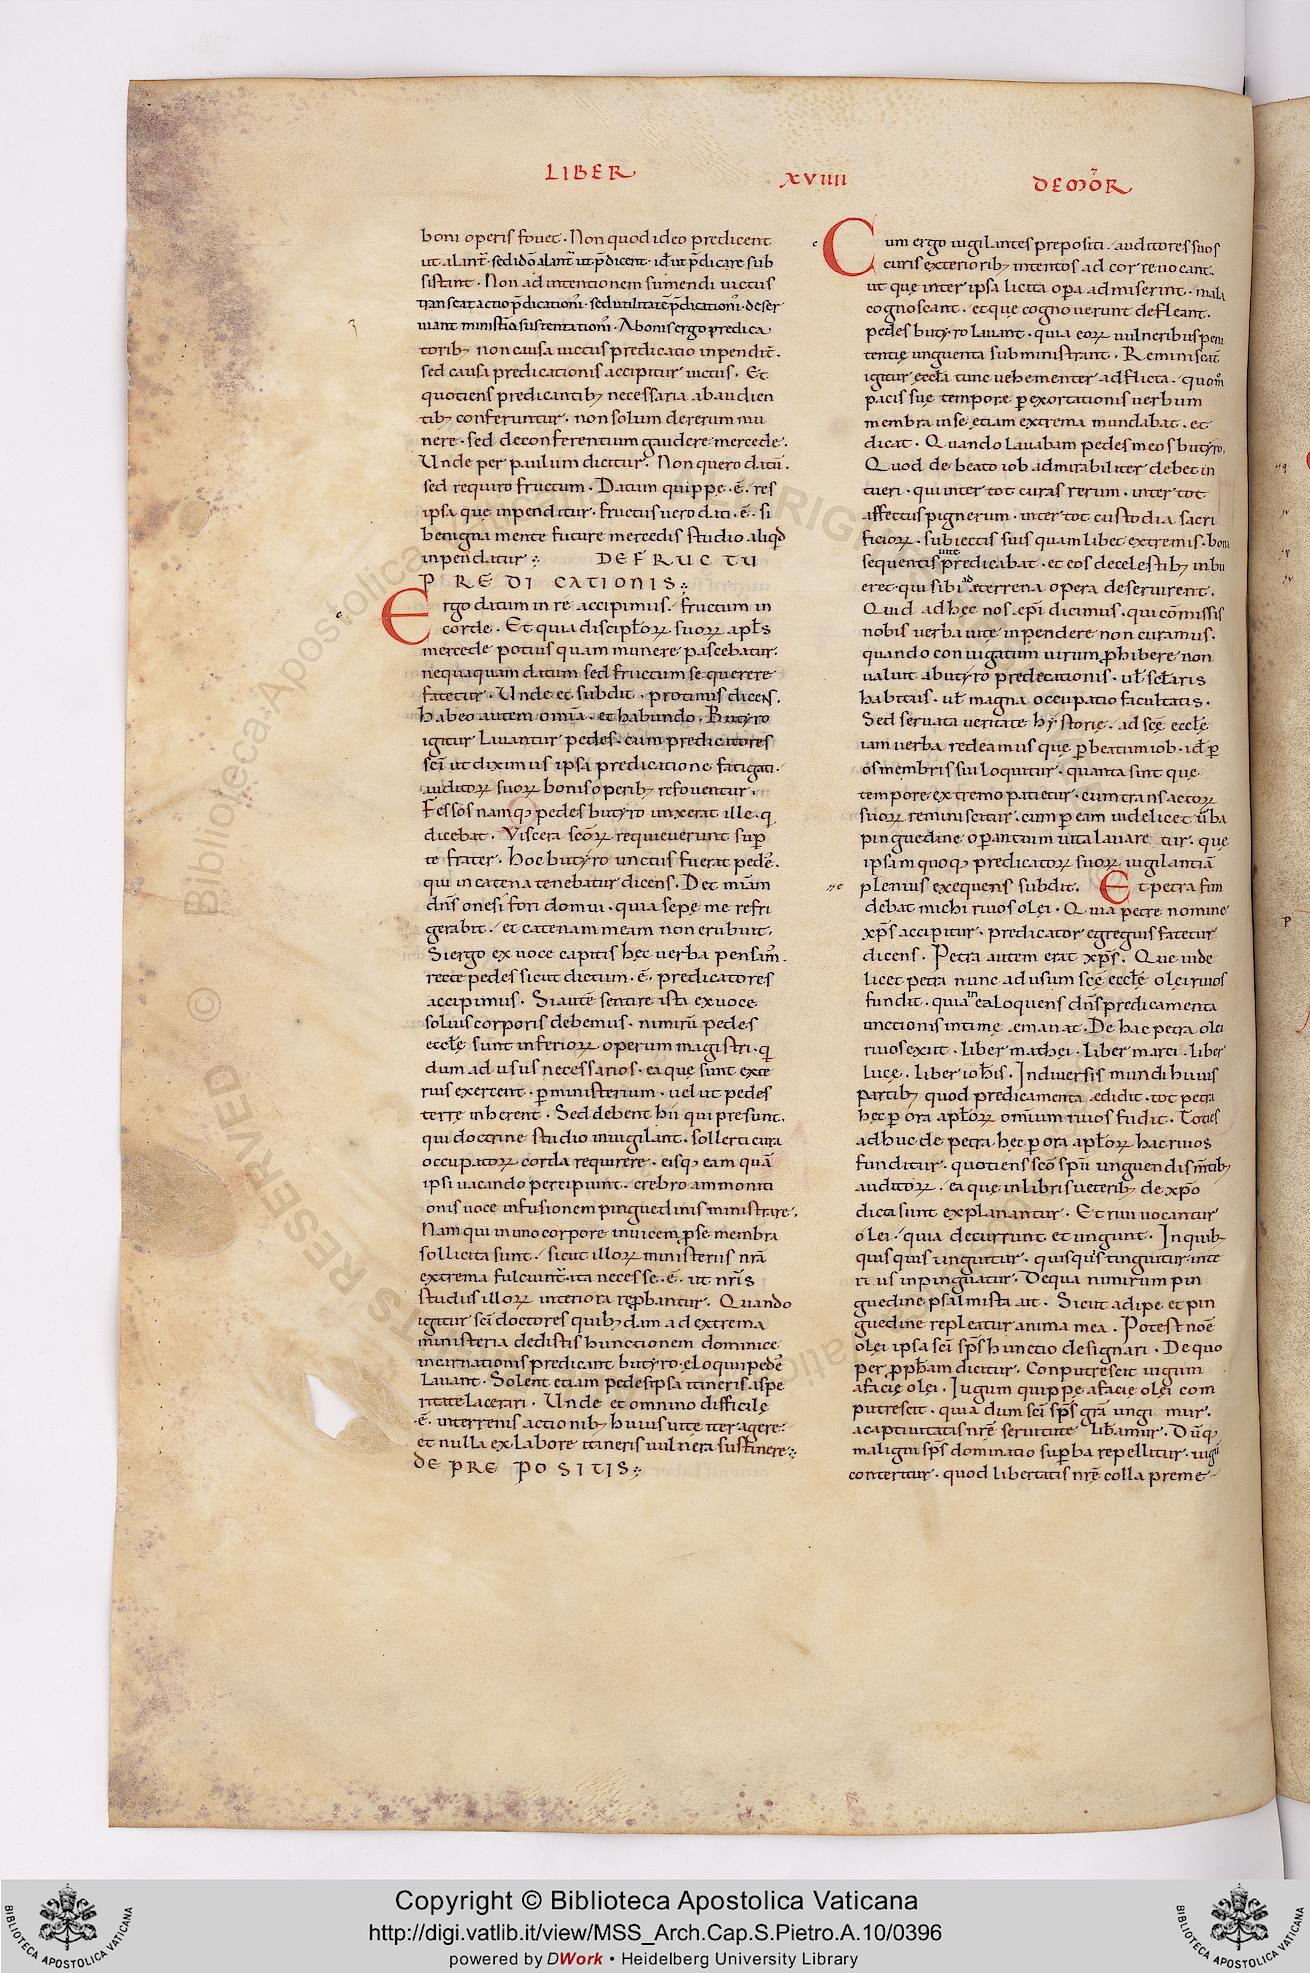 LIBER XVIIII DE MOR̄
boni operis fouet. Non quod ideo predicent
ut alant̄. sed idō alant̄ ut p̄dicent. id ̄ ut p̄dicare sub
sistant. Non ad intentionem sumendi uictus
transeat actio p̄dicationiſ. sed utilitatē p̄dicationiſ. deser
uiant ministr̄a sustentationiſ. A bonis ergo predica
torib; non causa uictus predicatio inpendit̄.
sed causa predicationis accipitur uictus. Et
quotiens predicantib; necessaria ab audien
tib; conferuntur. non solum de rerum mu
nere. sed de conferentium gaudere mercede.
Unde per paulum dicitur. Non quero datū.
sed requiro fructum. Datum quippe .ē. res
ipsa quę inpenditur. fructus uero dati .ē. si
benigna mente future mercedis studio aliqd
inpendatur DE FRUCTU
PREDICATIONIS
Ergo datum in re accipimus. fructum in
corde. Et quia discipł̄oꝝ suoꝝ apl̄s
mercede potius quam munere pascebatur.
nequaquam datum sed fructum se querere
fatetur. Unde et subdit. protinus dicens.
habeo autem omīa. et habundo. Butyro
igitur lauantur pedes. cum predicatores
scī ut diximus ipsa predicatione fatigati.
auditoꝝ suoꝝ bonis operib; refouentur.
Fessos namq; pedes butyro unxerat ille. q
dicebat. Viscera scōꝝ requieuerunt sup
te frater. Hoc butyro unctus fuerat pede.
qui in catena tenebatur dicens. Det miam
dn̄s onesifori domui. quia sepę me refri
gerabit. et catenam meam non erubuit.
Si ergo ex uoce capitis hęc uerba pensam̄.
recte pedes sicut dictum .ē. predicatores
accipimus. Si autē sentire ista ex uoce
solius corporis debemus. nimirū pedes
eccłę sunt inferioꝝ operum magistri. q
dum ad usus necessarios. ea que sunt exte
rius exercent. ꝑ ministerium. uelut pedes
terrę inherent. Sed debent hii qui presunt.
qui doctrine studio inuigilant. sollerti cura
occupatoꝝ corda requirere. eisq; eam quā
ipsi uacando percipiunt. crebro ammoniti
onis uoce infusionem pinguedinis ministrare.
Nam qui in uno corpore inuicem ꝓ se membra
sollicita sunt. sicut illoꝝ ministeriis nr̄a
extrema fulciunt̄. ita necesse .ē. ut nr̄is
studiis illoꝝ interiora reꝓbantur. Quando
igitur scī doctores quib; dam ad extrema
ministeria deditis hunctionem dominice
incarnationis predicant butyro eloquii pedē
lauant. Solent etiam pedes ipsa itineris aspe
ritate lacerari. Unde et omnino difficilę
.ē. in terrenis actionib; huius uitę iter agere.
et nulla ex labore itineris uulnera sustinere
DE PREPOSITIS
Cum ergo uigilantes prepositi. auditores suos
curis exteriorib; intentos ad cor reuocant.
ut quę inter ipsa licita oꝑa admiserint. mala
cognoscant. et quę cognouerunt defleant.
pedes butyro lauant. quia eoꝝ uulneribus peni
tentię unguenta subministrant. Reminiscat̄
igitur eccła tunc uehementer adflicta. quom̄
pacis suę tempore ꝑ exortationis uerbum
membra in se etiam extrema mundabat. et
dicat. Quando lauabam pedes meos butyro.
Quod de beato iob admirabiliter debet in
tueri. qui inter tot curas rerum. inter tot
affectus pignerum. inter tot custodia sacri
ficioꝝ. subiectis suis quam libet extremis. bona
sequentis uitę predicabat. et eos de celestib; inbu
eret. qui sibi ad terrena opera deseruirent.
Quid ad hęc nos ep̄i dicimus. qui cōmissis
nobis uerba uitę inpendere non curamus.
quando coniugatum uirum ꝓhibere non
ualuit a butyro predecationis. uł scłaris
habitus. uł magna occupatio facultatis.
Sed seruata ueritate hystorię. ad scę eccłę
iam uerba redeamus quę ꝑ beatum iob. id ꝑ
os membris sui loquitur. quanta sint que
tempore extremo patietur. cum transactoꝝ
suoꝝ reminiscitur. cum ꝑ eam uidelicet ūba
pinguedine oꝑantium uita lauare tur. que
ipsam quoq; predicatoꝝ suoꝝ uigilantiā
plenius exequens subdit. Et petra fun
debat michi riuos olei. Quia petre nomine
xp̄s accipitur. predicator egregius fatetur
dicens. Petra autem erat xp̄s. Que uide
licet petra nunc ad usum scę eccłę olei riuos
fundit. quia in ea loquens dn̄s predicamenta
unctionis intimę emanat. De hac petra olei
riuos exiit. liber mathei. liber marci. liber
lucę. liber ioħis. In diuersis mundi huius
partib; quod predicamenta ędidit. tot petra
hęc ꝑ ora apł̄oꝝ omnium riuos fudit. Toties
adhuc de petra hęc ꝑ ora apł̄oꝝ hac riuos
funditur. quotiens scō spū unguendis m̄tib;
auditoꝝ. ea quę in libris ueterib; de xp̄o
dicta sunt explanantur. Et riui uocantur
olei. quia decurrunt et ungunt. In quib;
quisquis tinguitur. quisquis tinguitur. inte
ri us inpinguatur. De qua nimirum pin
guedine psalmista ait. Sicut adipe et pin
guedine repleatur anima mea. Potest noē
olęi ipsa scī sp̄s hunctio designari. De quo
per ꝓpħam dicitur. Conputrescit iugum
a facie olęi. Iugum quippe a facie olęi com
putrescit. quia dum scī sp̄s gra̅ ungi mur.
a captiuitatis nr̄ę seruitute lib̄amur. Dūq;
maligni sp̄s dominatio suꝑba repellitur. iugū
conteritur. quod libertatis nr̄ę colla preme
Copyright © Biblioteca Apostolica Vaticana
http://digi.vatlib.it/view/MSS_Arch.Cap.S.Pietro.A.10/0396
powered by DWork • Heidelberg University Library
BIBLIOTECA APOSTOLICA VATICANA
BIBLIOTECA APOSTOLICA VATICANA
© Biblioteca Apostolica Vaticana
ALL RIGHTS RESERVED